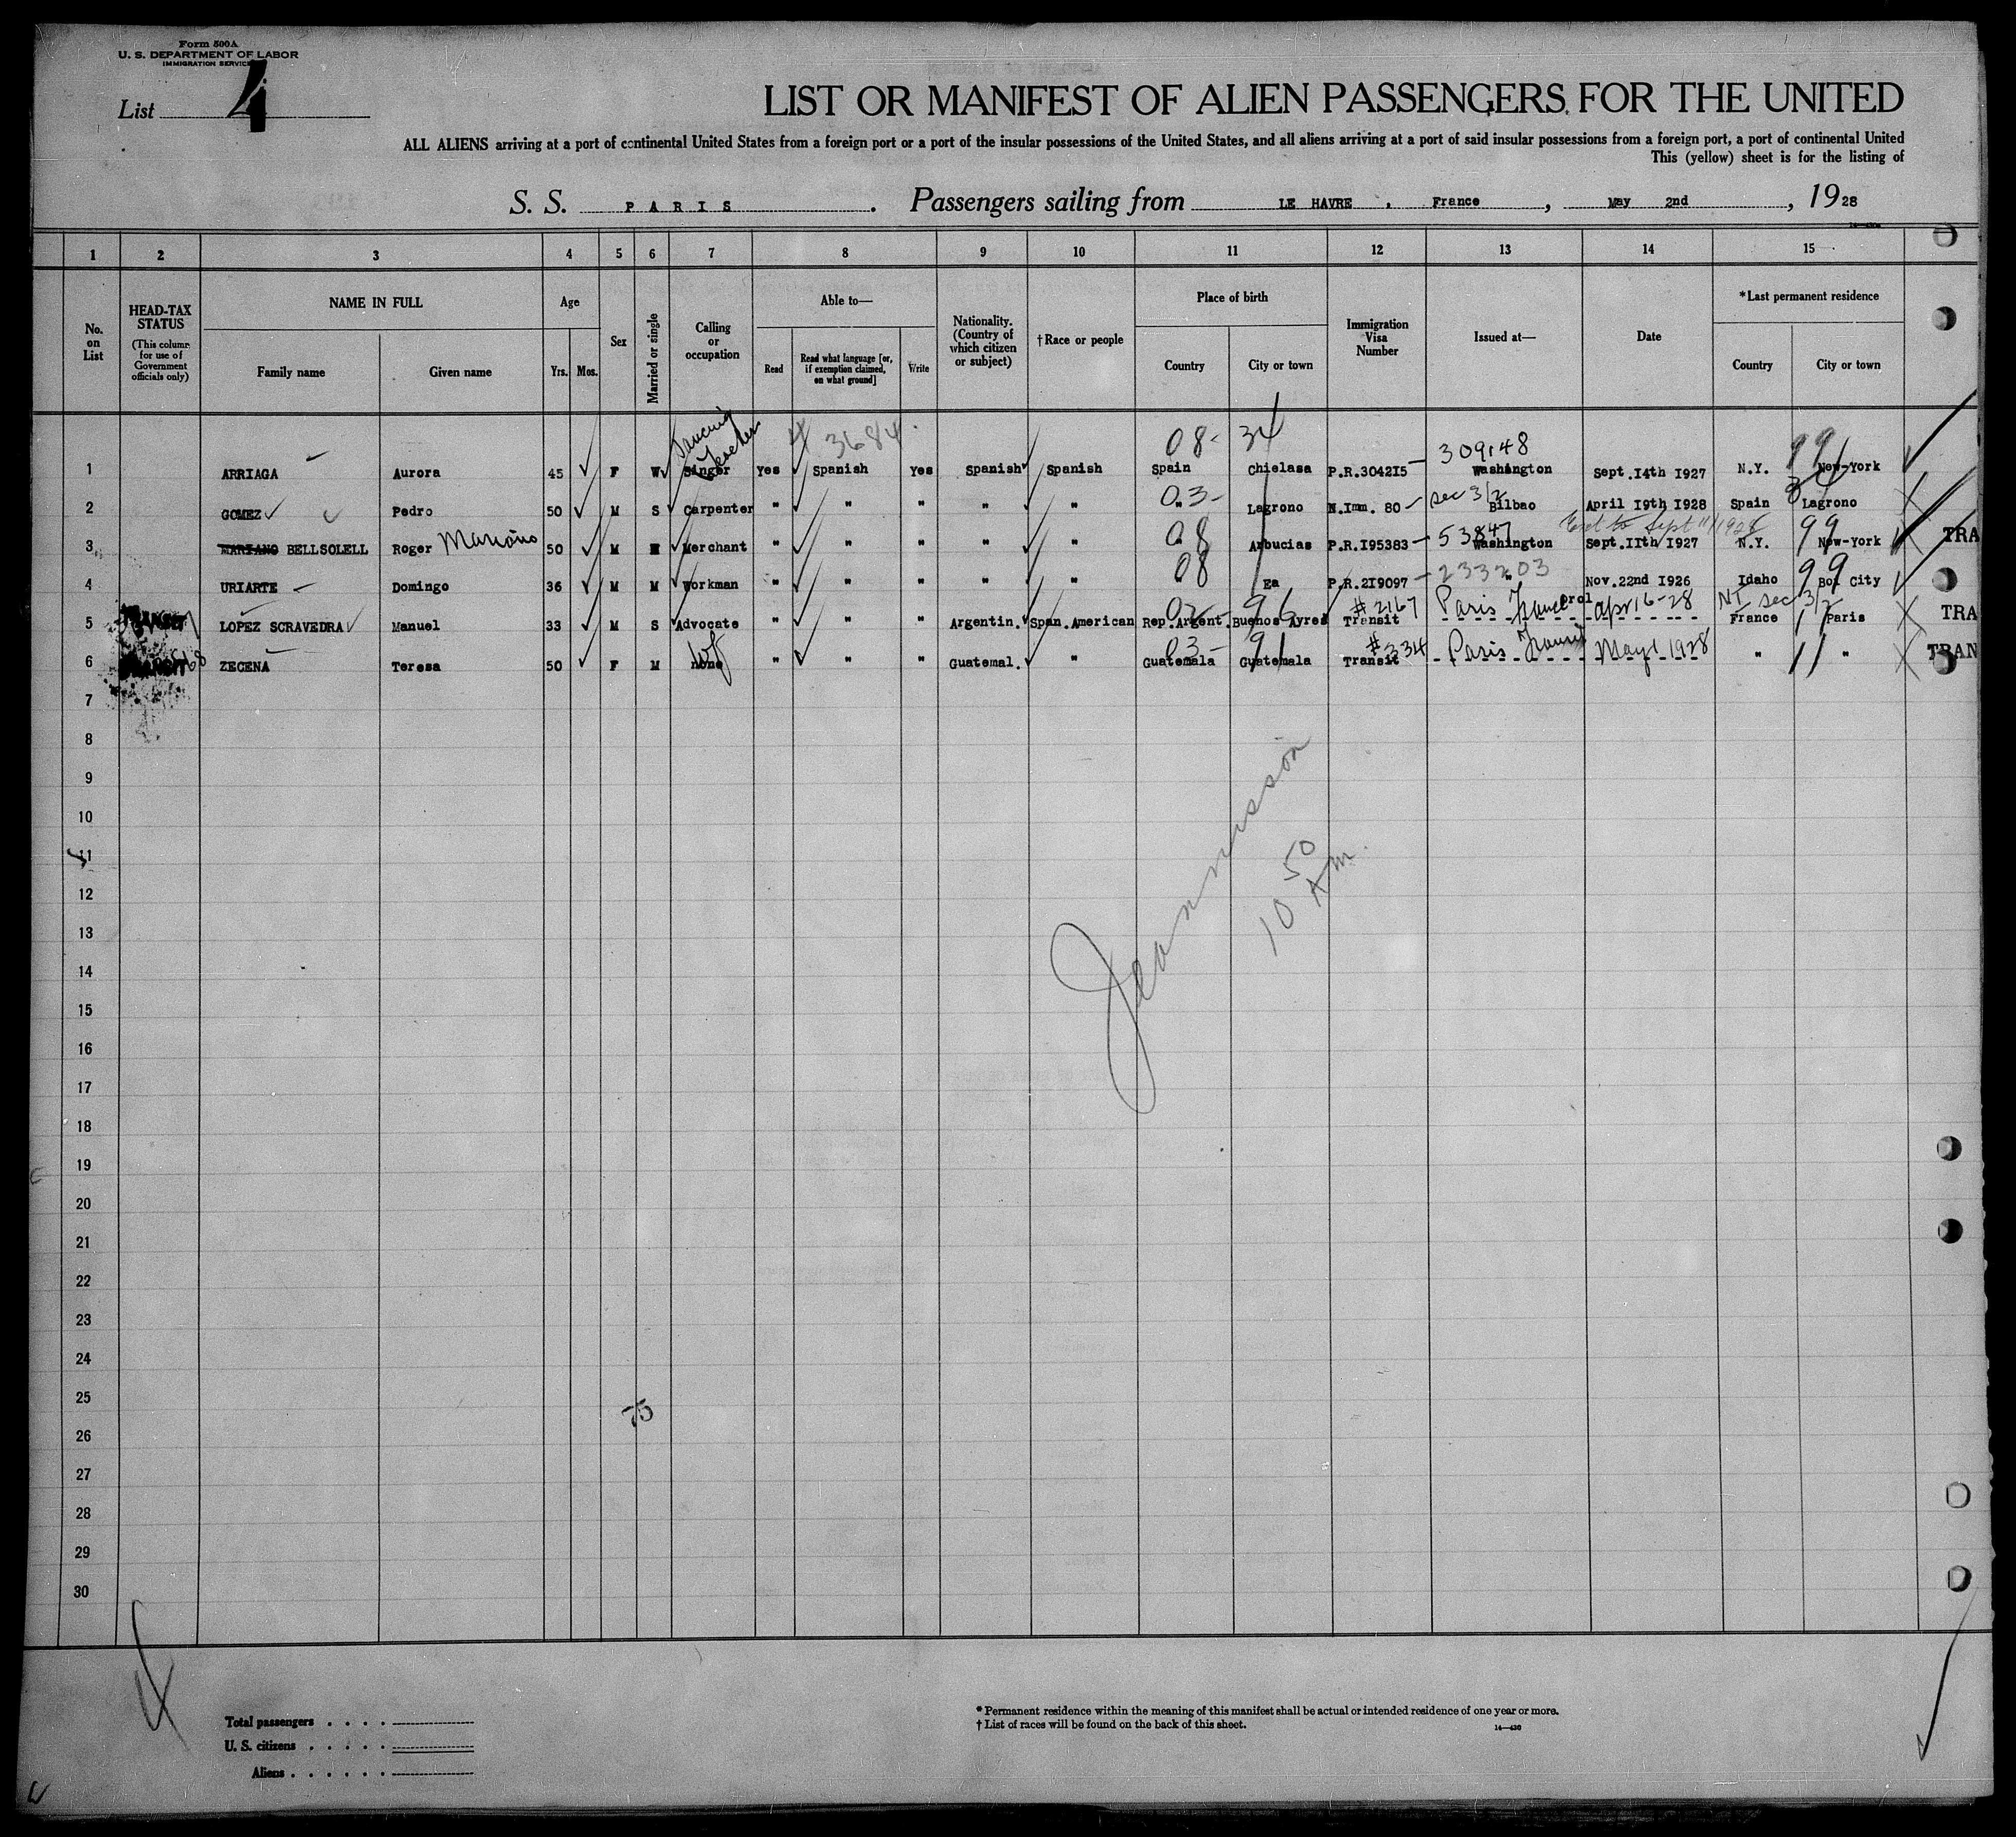 Form 500A
U. S. DEPARTMENT OF LABOR
IMMIGRATION SERVICE
List 4
LIST OR MANIFEST OF ALIEN PASSENGERS FOR THE UNITED
ALL ALIENS arriving at a port of continental United States from a foreign port or a part of the insular possessions of the United States, and all aliens arriving at a port of said insular possessions from a foreign port, a port of continental United
This (yellow) sheet is for the listing of
S. S. PARIS . Passengers sailing from LE HAVRE . France , May 2nd , 1928
1 2 3 4 5 6 7 8 9 10 11 12 13 14 15
No. on List
HEAD-TAX STATUS
(This column for use of Government officials only)
NAME IN FULL
Family name Given name
Age
Yrs. Mos.
Sex
Married or single
Calling or occupation
Able to—
Read Read what language [or, if exemption claimed, on what ground] Write
Nationality. (Country of which citizen or subject)
†Race or people
Place of birth
Country City or town
Immigration Visa Number
Issued at—
Date
*Last permanent residence
Country City or town
Dancing Teacher 4 3684 08- 34 309148 99
1 ARRIAGA Aurora 45 F W Singer Yes Spanish Yes Spanish Spanish Spain Chielasa P.R.304215 Washington Sept.14th 1927 N.Y. New-York
03- sec 3/2 34
2 GOMEZ Pedro 50 M S Carpenter " " " " " " Lagrono N.Imm. 80 Bilbao April 19th 1928 Spain Lagrono
08 53847 Sept 11/1928 99
3 MARIANO BELLSOLELL Roger 50 M M Merchant " " " " " " Arbucias P.R.I95383 Washington Sept.IIth 1927 N.Y. New-York TRA
08 233203 99
4 URIARTE Domingo 36 M M Workman " " " " " " Ea P.R.2I9097 " Nov.22nd I926 Idaho Boi City
TRANSIT 02 96 #2167 Paris France Apr 16-28 sec 3/2
5 LOPEZ SCRAVEDRA Manuel 33 M S Advocate " " " Argentin. Span.American Rep.Argent. Buenos Ayres Transit France Paris TRA
TRANSIT wf 03- 91 #334 Paris France May 1 1928 11
6 ZECENA Teresa 50 F M none " " " Guatemal. " Guatemala Guatemala Transit " " TRAN
7
8
9
10
11
12
13
14
15
16
17
18
19
20
21
22
23
24
25
26
27
28
29
30
10 50 AM.
75
Total passengers
U. S. citizens
Aliens
* Permanent residence within the meaning of this manifest shall be actual or intended residence of one year or more.
† List of races will be found on the back of this sheet.
14—430